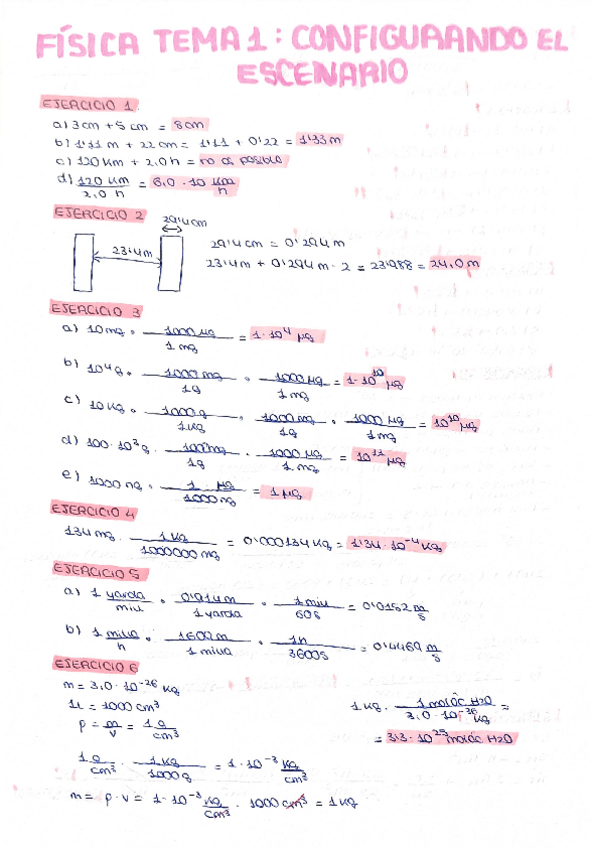 FÍSICA TEMA 1: CONFIGURANDO EL
ESCENARIO
EJERCICIO 1
a) 3cm + 5 cm = 8cm
b) 1'11 m + 22 cm = 1'11 + 0'22 = 1'33 m
c) 120 km + 2,0 h = no es posible
d) 120 km / 2,0 h = 6,0 · 10 km/h
EJERCICIO 2
29'4cm
23'4m
29'4 cm = 0'294 m
23'4m + 0'294 m · 2 = 23'988 = 24,0 m
EJERCICIO 3
a) 10 mg · 1000 µg / 1 mg = 1 · 10⁴ µg
b) 10⁴ g · 1000 mg / 1g · 1000 µg / 1 mg = 1 · 10¹⁰ µg
c) 10 kg · 1000 g / 1 kg · 1000 mg / 1g · 1000 µg / 1 mg = 10¹⁰ µg
d) 100 · 10³ g · 1000 mg / 1g · 1000 µg / 1 mg = 10¹² µg
e) 1000 ng · 1 µg / 1000 ng = 1 µg
EJERCICIO 4
134 mg · 1 kg / 1000000 mg = 0'000134 kg = 1'34 · 10⁻⁴ kg
EJERCICIO 5
a) 1 yarda/min · 0'914m / 1 yarda · 1 min / 60s = 0'0152 m/s
b) 1 milla/h · 1609 m / 1 milla · 1h / 3600s = 0'4469 m/s
EJERCICIO 6
m = 3,0 · 10⁻²⁶ kg
1L = 1000 cm³
ρ = m/v = 1 g/cm³
1 g/cm³ · 1 kg / 1000 g = 1 · 10⁻³ kg/cm³
m = ρ · v = 1 · 10⁻³ kg/cm³ · 1000 cm³ = 1 kg
1 kg · 1 moléc H2O / 3,0 · 10⁻²⁶ kg =
= 3,3 · 10²⁵ moléc H2O